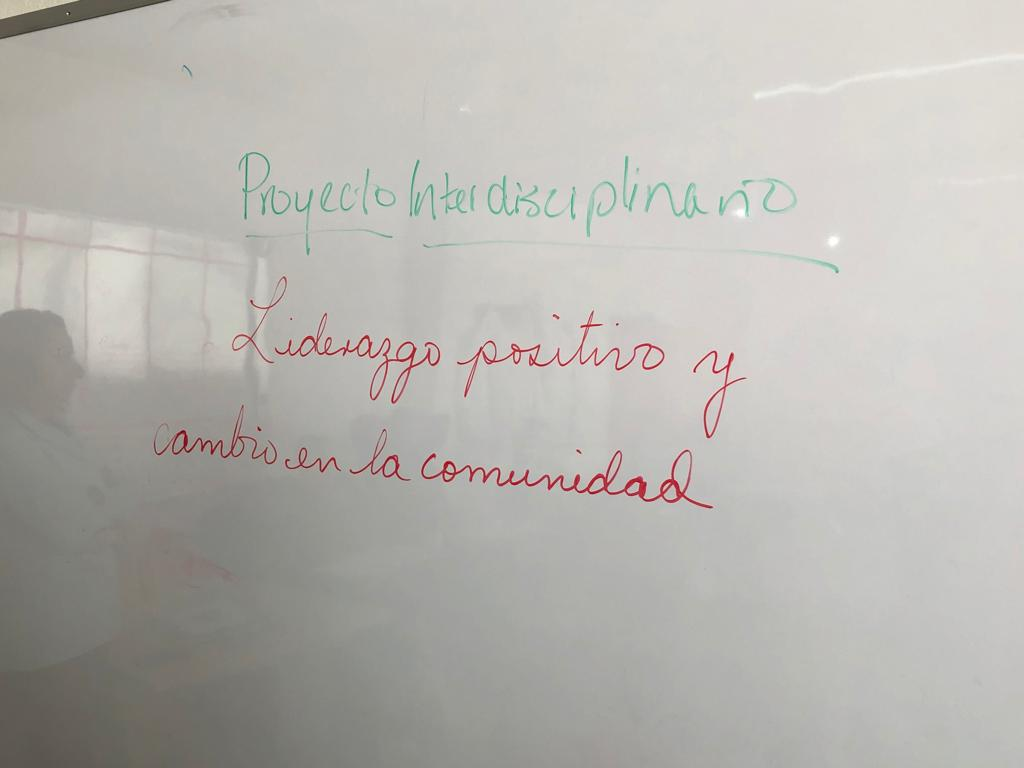 Proyecto Interdisciplinario
Liderazgo positivo y
cambio en la comunidad